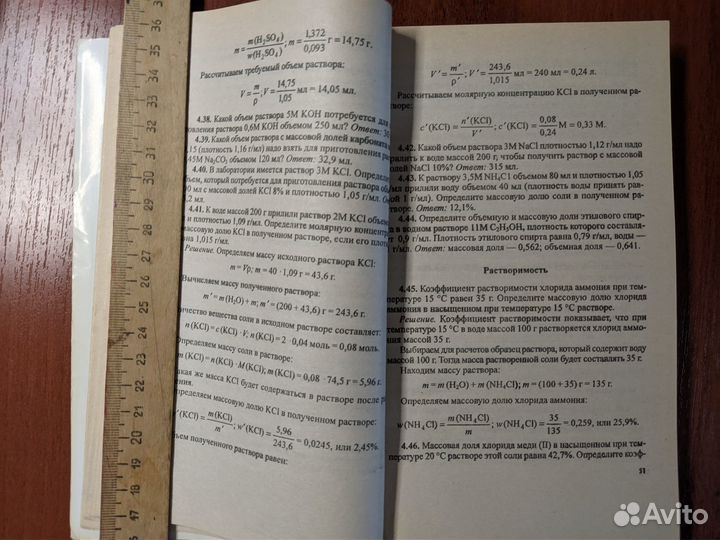 m = m(H₂SO₄)/w(H₂SO₄); m = 1,372/0,093 г = 14,75 г.
Рассчитываем требуемый объем раствора:
V = m/ρ; V = 14,75/1,05 мл = 14,05 мл.
4.38. Какой объем раствора 5М KOH потребуется для
товления раствора 0,6М KOH объемом 250 мл? Ответ: 30
4.39. Какой объем раствора с массовой долей карбоната
,15 (плотность 1,16 г/мл) надо взять для приготовления раствора
,45М Na₂CO₃ объемом 120 мл? Ответ: 32,9 мл.
4.40. В лаборатории имеется раствор 3М KCl. Определите
ъем, который потребуется для приготовления раствора объ
00 мл с массовой долей KCl 8% и плотностью 1,05 г/мл. О
,2 мл.
4.41. К воде массой 200 г прилили раствор 2М KCl объем
л и плотностью 1,09 г/мл. Определите молярную концентрац
массовую долю KCl в полученном растворе, если его плотн
вна 1,015 г/мл.
Решение. Определяем массу исходного раствора KCl:
m = Vρ; m = 40 · 1,09 г = 43,6 г.
Вычисляем массу полученного раствора:
m′ = m(H₂O) + m; m′ = (200 + 43,6) г = 243,6 г.
личество вещества соли в исходном растворе составляет:
n(KCl) = c(KCl) · V; n(KCl) = 2 · 0,04 моль = 0,08 моль.
Определяем массу соли в растворе:
m(KCl) = n(KCl) · M(KCl); m(KCl) = 0,08 · 74,5 г = 5,96 г.
акая же масса KCl будет содержаться в растворе после р
ения.
пределяем массовую долю KCl в полученном растворе:
w′(KCl) = m(KCl)/m′; w′(KCl) = 5,96/243,6 = 0,0245, или 2,45%.
ъем полученного раствора равен:
V′ = m′/ρ′; V′ = 243,6/1,015 мл = 240 мл = 0,24 л.
Рассчитываем молярную концентрацию KCl в полученном рас-
воре:
c′(KCl) = n′(KCl)/V′; c′(KCl) = 0,08/0,24 М = 0,33 М.
4.42. Какой объем раствора 3М NaCl плотностью 1,12 г/мл надо
рилить к воде массой 200 г, чтобы получить раствор с массовой
олей NaCl 10%? Ответ: 315 мл.
4.43. К раствору 3,5М NH₄Cl объемом 80 мл и плотностью 1,05
/мл прилили воду объемом 40 мл (плотность воды принять рав-
ой 1 г/мл). Определите массовую долю соли в полученном рас-
воре. Ответ: 12,1%.
4.44. Определите объемную и массовую доли этилового спир-
а в водном растворе 11М C₂H₅OH, плотность которого составля-
т 0,9 г/мл. Плотность этилового спирта равна 0,79 г/мл, воды —
г/мл. Ответ: массовая доля — 0,562; объемная доля — 0,641.
Растворимость
4.45. Коэффициент растворимости хлорида аммония при тем-
пературе 15 °С равен 35 г. Определите массовую долю хлорида
аммония в насыщенном при температуре 15 °С растворе.
Решение. Коэффициент растворимости показывает, что при
температуре 15 °С в воде массой 100 г растворяется хлорид аммо-
ния массой 35 г.
Выбираем для расчетов образец раствора, который содержит воду
массой 100 г. Тогда масса растворенной соли будет составлять 35 г.
Находим массу раствора:
m = m(H₂O) + m(NH₄Cl); m = (100 + 35) г = 135 г.
Определяем массовую долю хлорида аммония:
w(NH₄Cl) = m(NH₄Cl)/m; w(NH₄Cl) = 35/135 = 0,259, или 25,9%.
4.46. Массовая доля хлорида меди (II) в насыщенном при тем-
пературе 20 °С растворе этой соли равна 42,7%. Определите коэф-
51
36 35 34 33 32 31 30 29 28 27 26 25 24 23 22 21 20 19 18 17
Avito